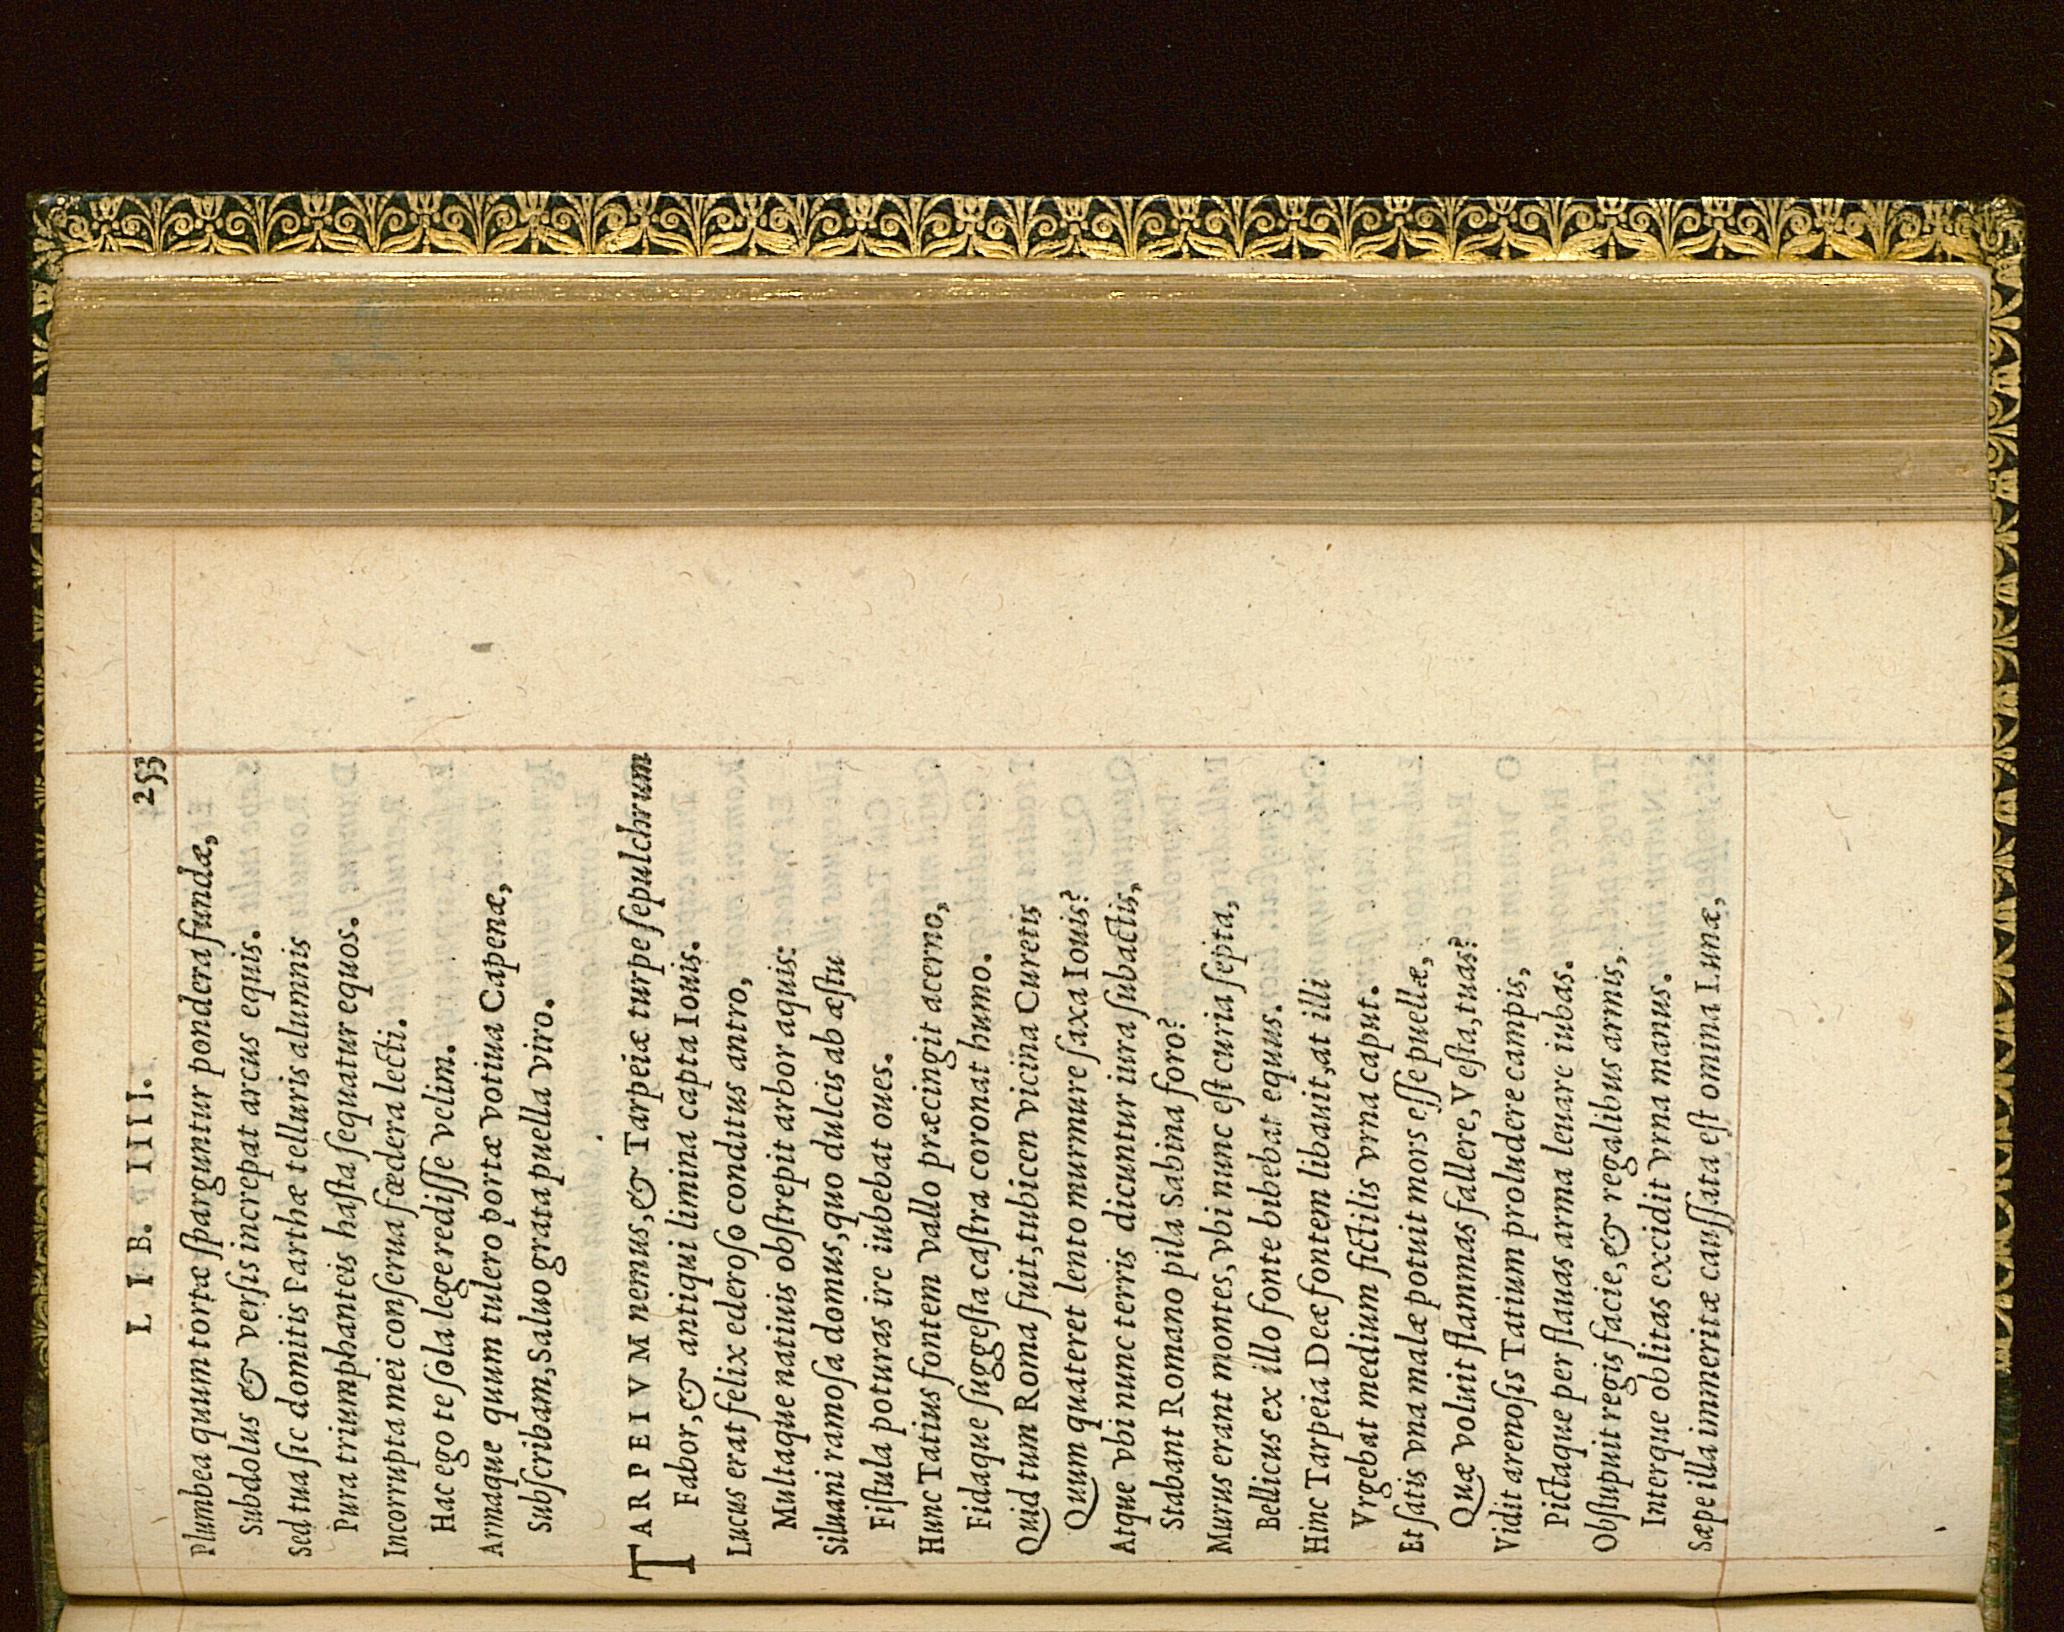 LIB. IIII. 253
Plumbea quum tortæ ſparguntur pondera fundæ,
Subdolus & verſis increpat arcus equis.
Sed tua ſic domitis Parthæ telluris alumnis
Pura triumphanteis haſta ſequatur equos.
Incorrupta mei conſerua fœdera lecti.
Hac ego te ſola lege rediſſe velim.
Armaque quum tulero portæ votiua Capenæ,
Subſcribam, Saluo grata puella viro.
TARPEIVM nemus, & Tarpeiæ turpe ſepulchrum
Fabor, & antiqui limina capta Iouis.
Lucus erat felix ederoſo conditus antro,
Multaque natiuis obſtrepit arbor aquis:
Siluani ramoſa domus, quo dulcis ab æſtu
Fiſtula poturas ire iubebat oues.
Hunc Tatius fontem vallo præcingit acerno,
Fidaque ſuggeſta caſtra coronat humo.
Quid tum Roma fuit, tubicen vicina Curetis
Quum quateret lento murmure ſaxa Iouis?
Atque vbi nunc terris dicuntur iura ſubactis,
Stabant Romano pila Sabina foro?
Murus erant montes, vbi nunc eſt curia ſepta,
Bellicus ex illo fonte bibebat equus.
Hinc Tarpeia Deæ fontem libauit, at illi
Vrgebat medium fictilis vrna caput.
Et ſatis vna malæ potuit mors eſſe puellæ,
Quæ voluit flammas fallere, Veſta, tuas?
Vidit arenoſis Tatium proludere campis,
Pictaque per flauas arma leuare iubas.
Obſtupuit regis facie, & regalibus armis,
Interque oblitas excidit vrna manus.
Sæpe illa immeritæ cauſſata eſt omina Lunæ,